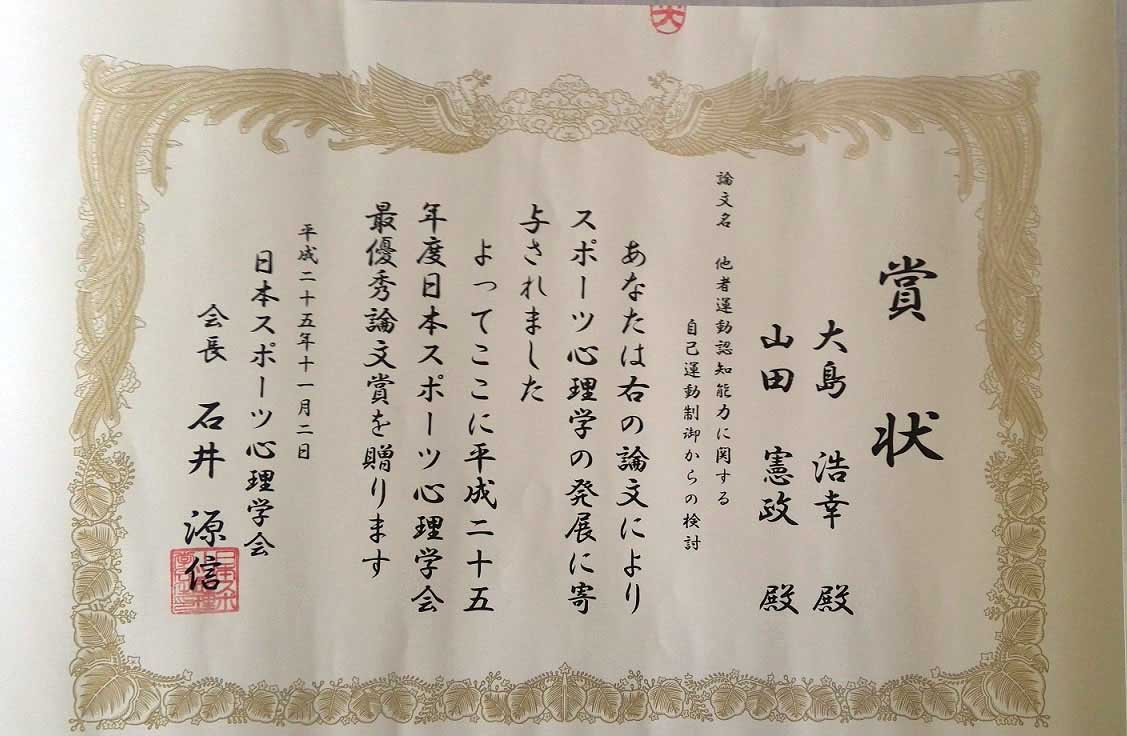 賞状
大島 浩幸 殿
山田 憲政 殿
論文名 他者運動認知能力に関する
自己運動制御からの検討
あなたは右の論文により
スポーツ心理学の発展に寄
与されました
よってここに平成二十五
年度日本スポーツ心理学会
最優秀論文賞を贈ります
平成二十五年十一月二日
日本スポーツ心理学会
会長 石井 源信